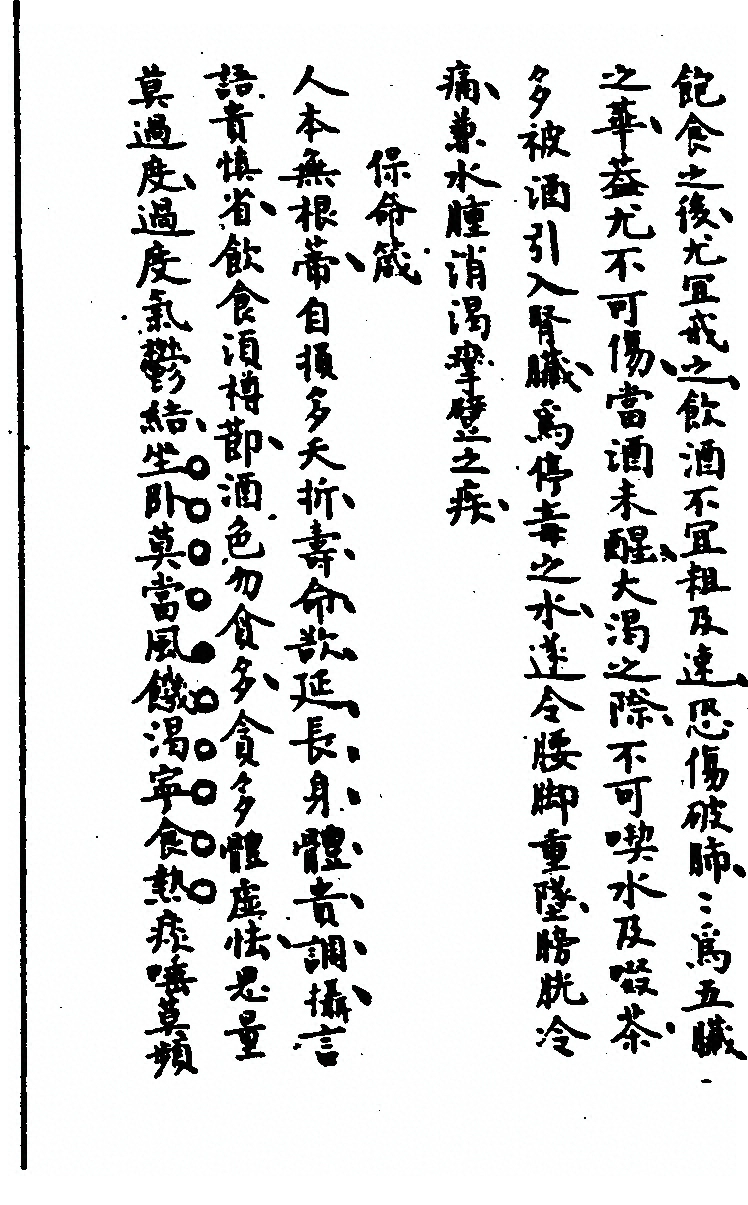 飽食之後尤宜戒之飲酒不宜粗及速恐傷破肺〻爲五臟
之華葢尤不可傷當酒未醒大渴之際不可喫水及啜茶
多被酒引入腎臟爲停毒之水遂令腰脚重墜膀胱冷
痛兼水腫消渴攣躄之疾
保命箴
人本無根蒂自損多夭折壽命欲延長身體貴調攝言
語貴慎省飲食須樽節酒色勿貪多貪多體虛怯思量
莫過度過度氣鬱結坐卧莫當風饑渴寧食熱痰唾莫頻